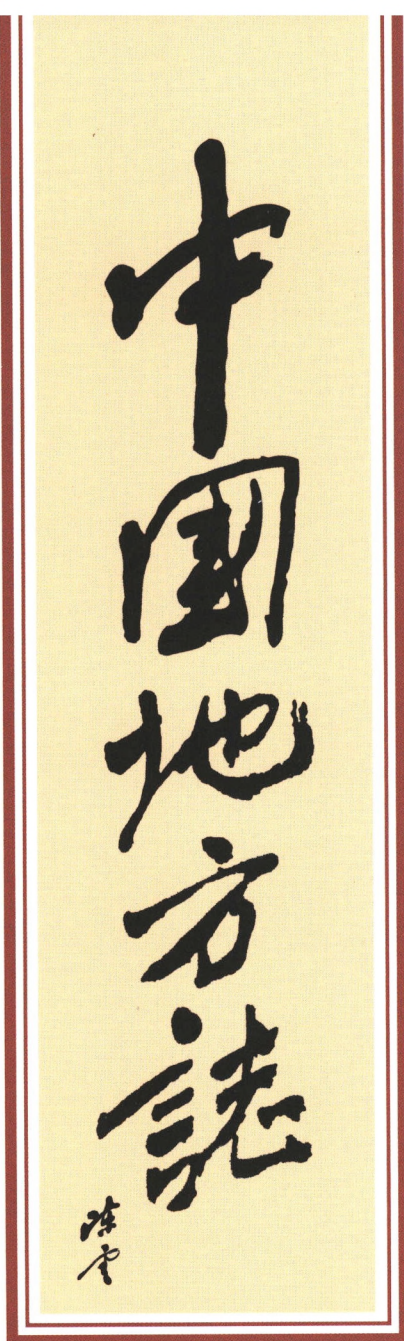 中国地方誌
陈云